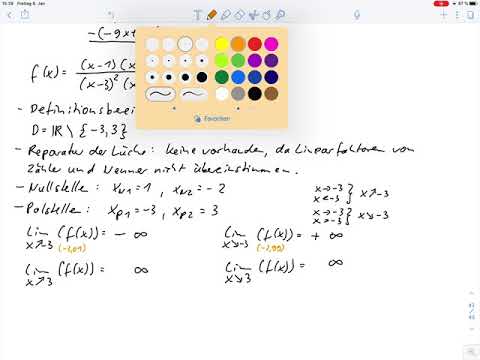 15:29 Freitag 8. Jan
87 %
-(-9x+
f(x) = (x-1)(x
(x-3)² (x
Favoriten
- Definitionsberei
D = ℝ \ {-3,3}
- Reparatur der Lücke: keine vorhanden, da Linearfaktoren von
Zähler und Nenner nicht übereinstimmen.
- Nullstelle: x_N1 = 1 , x_N2 = -2
- Polstellen: x_P1 = -3 , x_P2 = 3
x→-3
x<-3 } x↗-3
x→-3
x>-3 } x↘-3
Lim x↗-3 (f(x)) = - ∞
(-3,01)
Lim x↘-3 (f(x)) = + ∞
(-2,99)
Lim x↗3 (f(x)) = ∞
Lim x↘3 (f(x)) = ∞